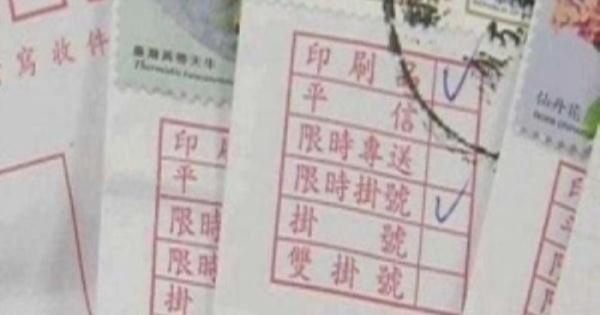 寫收件
臺灣黃條天牛
仙丹花
印刷品
平信
限時專送
限時掛號
掛號
雙掛號
印刷
平
限時
限時
掛